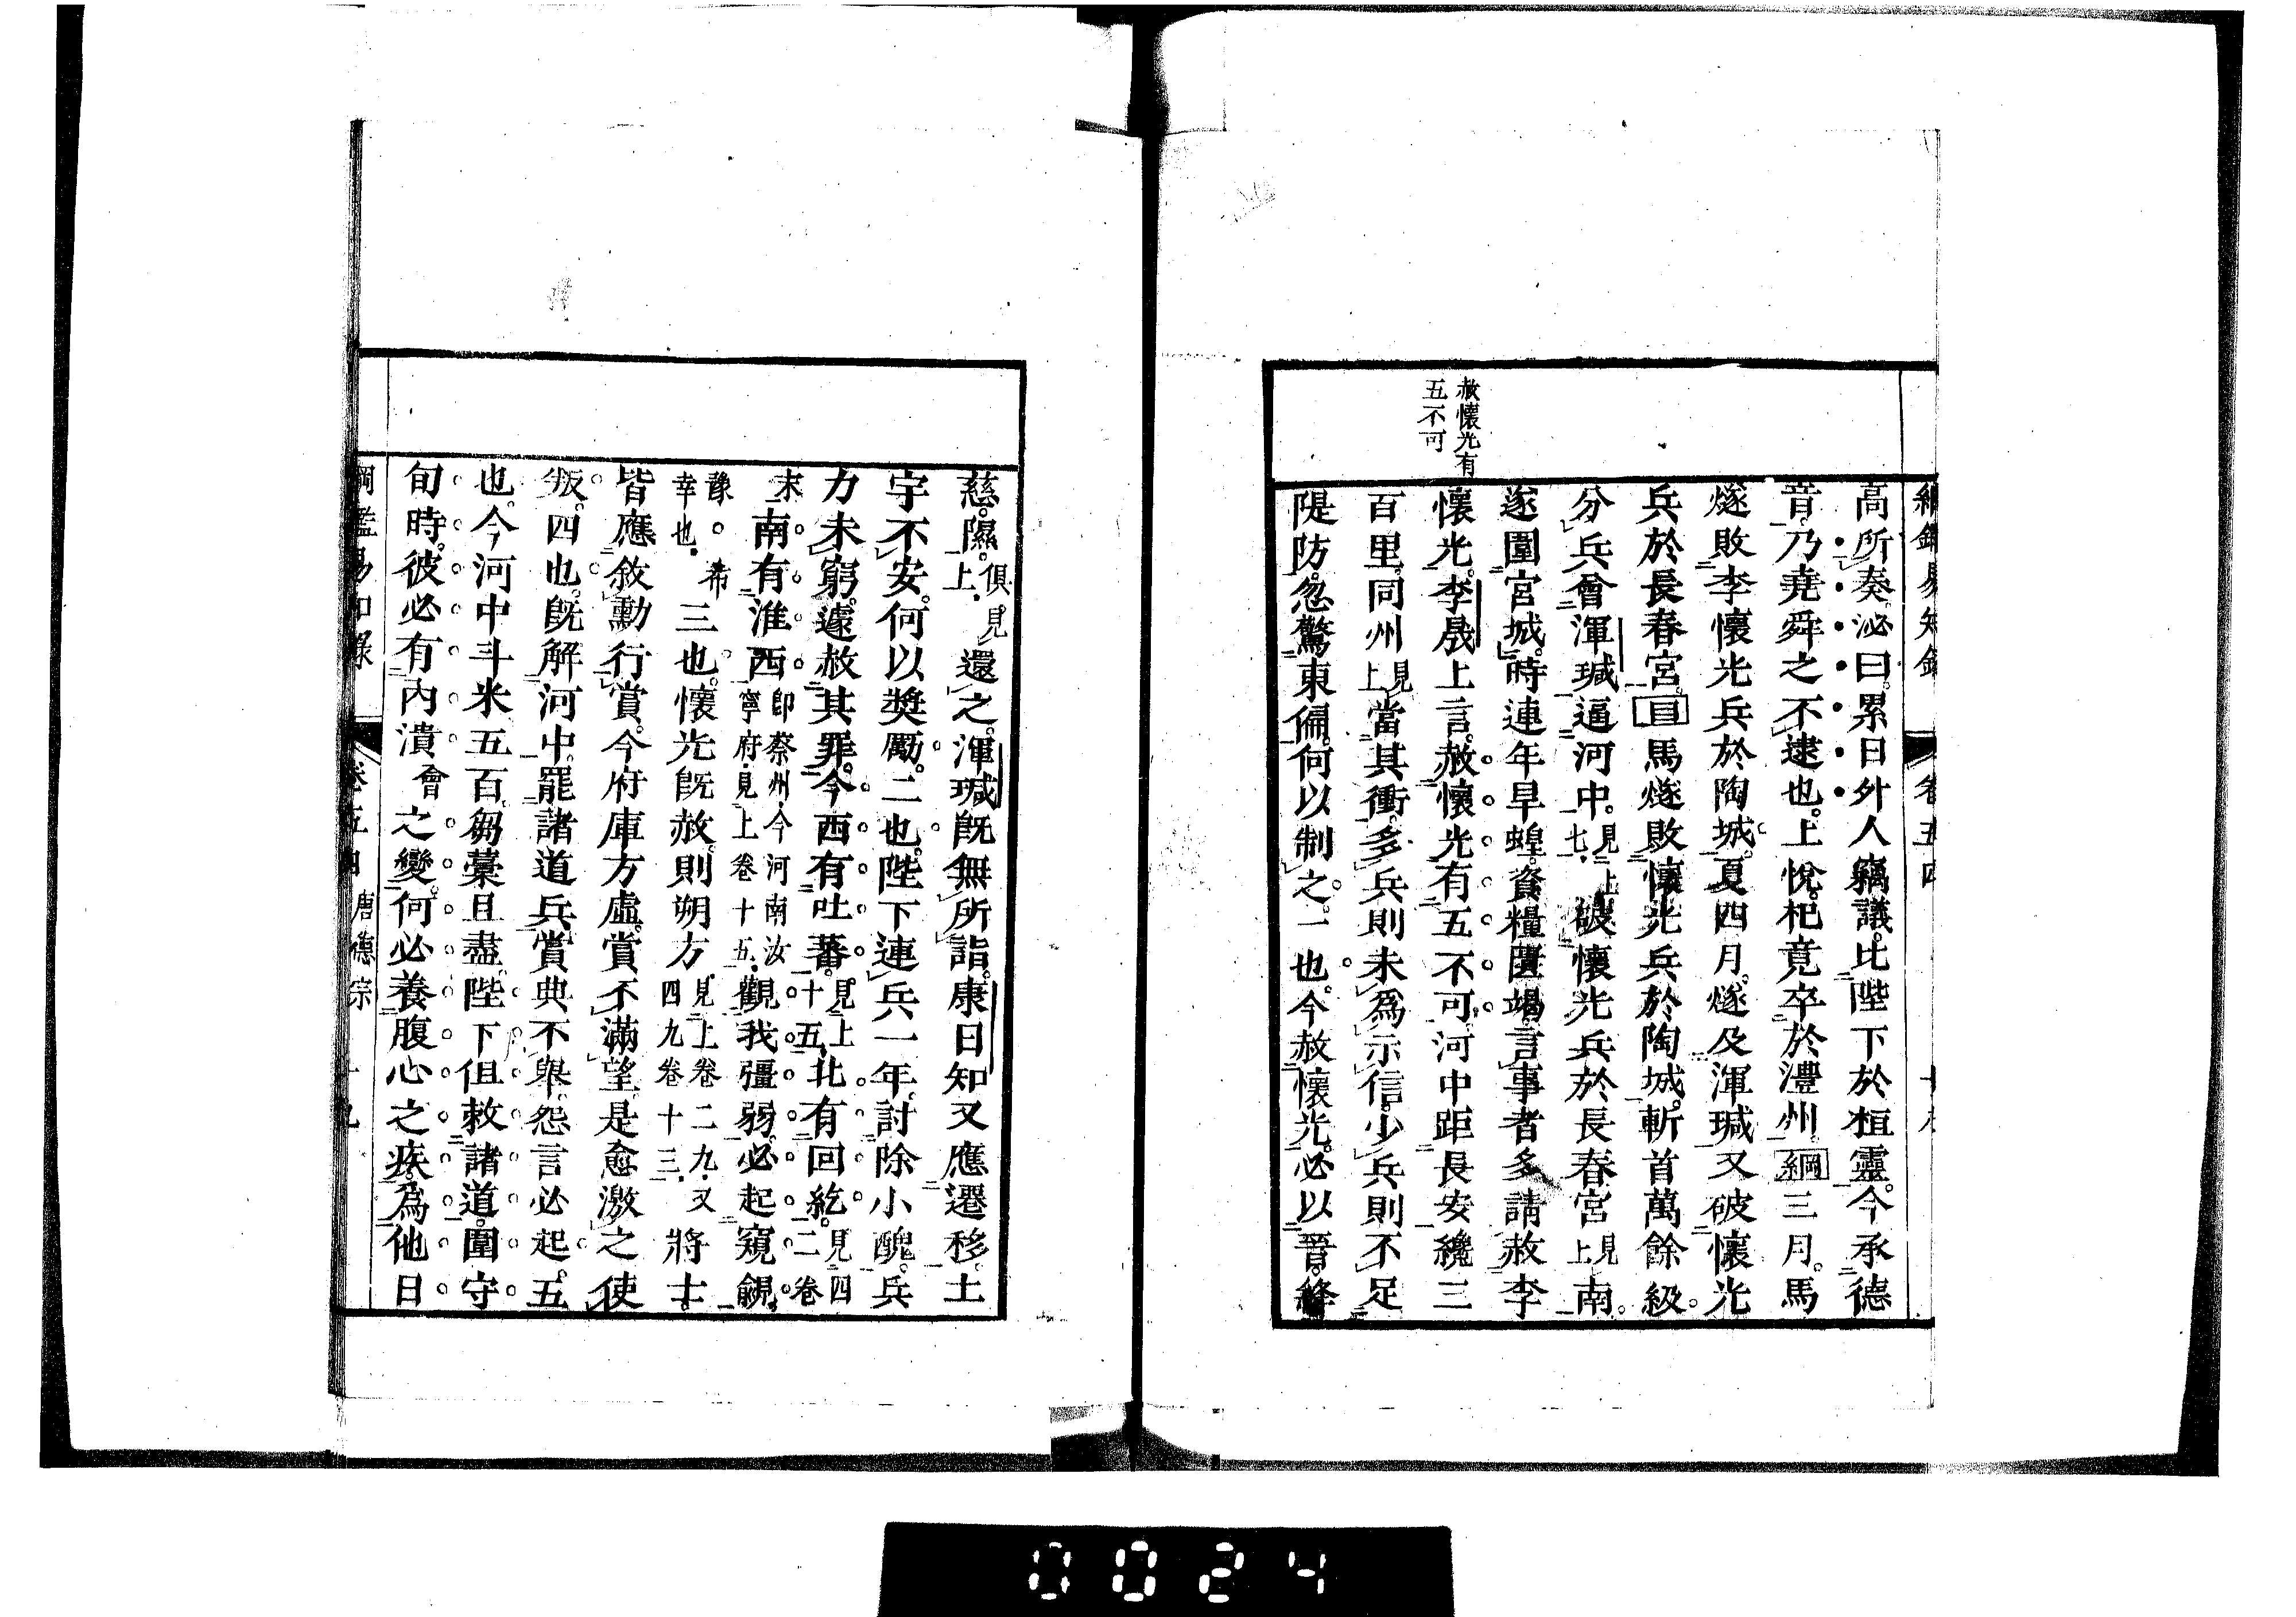 綱鑑易知錄 卷五四
高所奏。泌曰。累日外人竊議。比陛下於桓靈。今承德
音。乃堯舜之不逮也。上悅。杞竟卒於澧州。綱三月。馬
燧敗李懷光兵於陶城。夏四月。燧及渾瑊又破懷光
兵於長春宮。目馬燧敗懷光兵於陶城。斬首萬餘級。
分兵會渾瑊。逼河中。見上七。破懷光兵於長春宮見上南。
遂圍宮城。時連年旱蝗。資糧匱竭。言事者多請赦李
懷光。李晟上言。赦懷光有五不可。河中距長安纔三
百里。同州見上當其衝。多兵則未為示信。少兵則不足
隄防。忽驚東偏。何以制之。一也。今赦懷光。必以晉絳
赦懷光有
五不可
慈隰。俱見上。還之。渾瑊既無所詣。康日知又應遷移。土
宇不安。何以獎勵。二也。陛下連兵一年。討除小醜。兵
力未窮。遽赦其罪。今西有吐蕃。見上十五。北有回紇。見四二卷
末。南有淮西即蔡州。今河南汝寧府。見上卷十五。觀我彊弱。必起窺覦。
豫。幸也。希三也。懷光既赦。則朔方見上卷二九。又四九卷十三。將士。
皆應敘勳行賞。今府庫方虛。賞不滿望。是愈激之使
叛。四也。既解河中。罷諸道兵。賞典不舉。怨言必起。五
也。今河中斗米五百。芻藁且盡。陛下但敕諸道。圍守
旬時。彼必有內潰會之變。何必養腹心之疾。為他日
綱鑑易知錄 卷五四 唐德宗 十九
0024